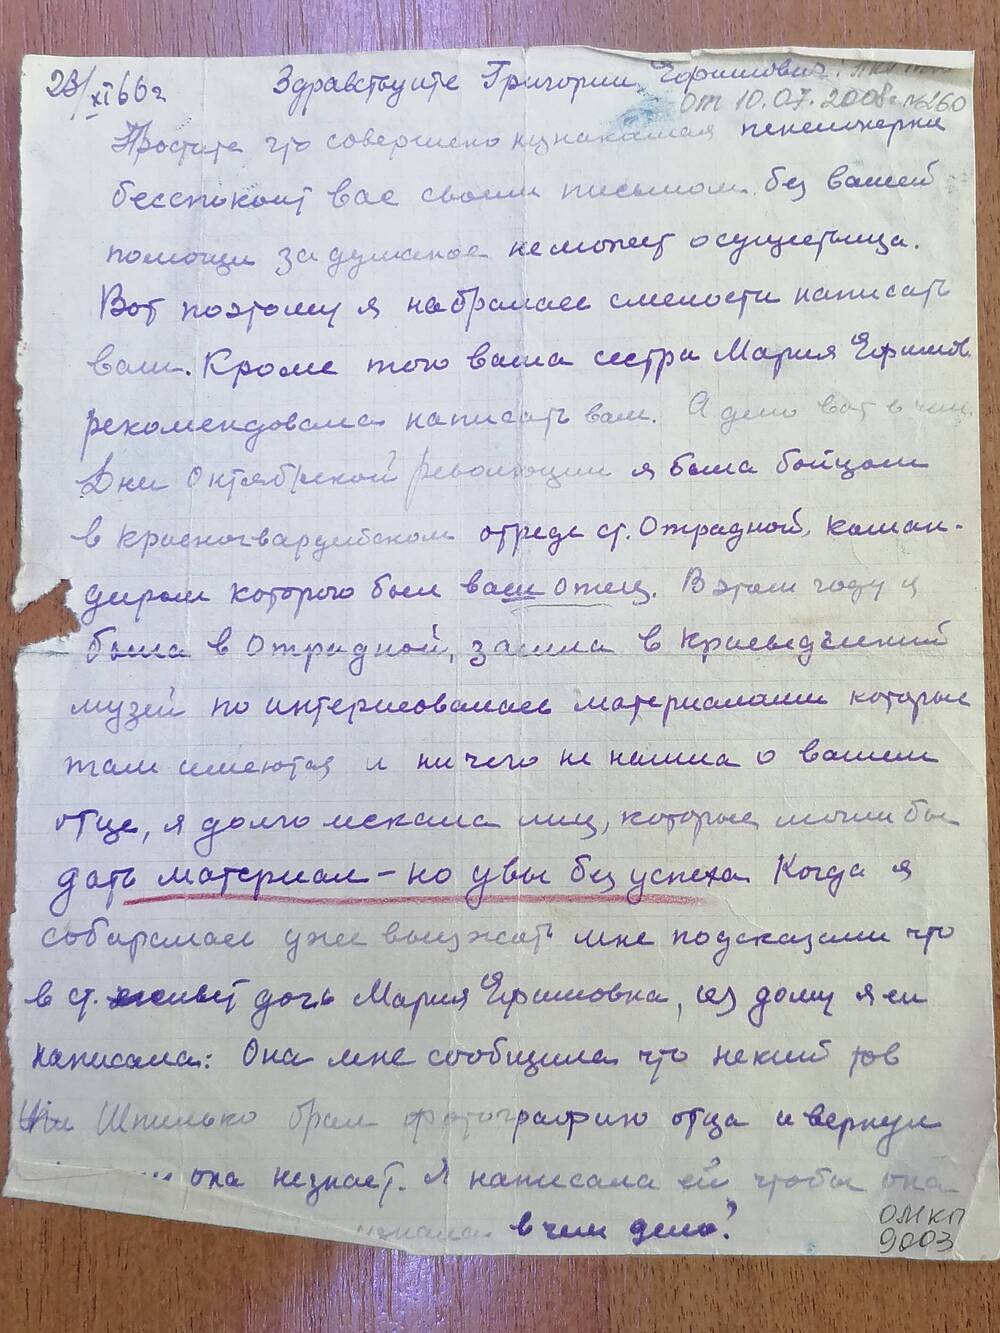 23/XI 66 г Здравствуйте Григории Ефимович!
от 10.07.2008г №260
Простите что совершено незнакамая пенсионерка
бесспокоит вас своим письмом, без вашей
помощи задуманое неможет осуществица.
Вот поэтому я набралась смелости написать
вам. Кроме того ваша сестра Мария Ефимов.
рекомендовала написать вам. А дело вот в чем.
Дни Октябрьской революции я была бойцом
в красногвардейском отреде ст. Отрадной, коман-
диром которого был ваш отец. В этом году я
была в Отрадной, зашла в Краеведческий
музей по интерисовалась материалами которые
там имеются и ничего не нашла о вашем
отце, я долго искала лиц, которые могли бы
дать материал – но увы без успеха. Когда я
собиралась уже выезжать мне подсказали что
в ст. живет дочь Мария Ефимовка, из дому я ей
написала: Она мне сообщила что некий тов
Шпилько брал фотографию отца и вернул
она незнает. Я написала ей чтобы она
узнала в чем дело?
ОМКП
9003